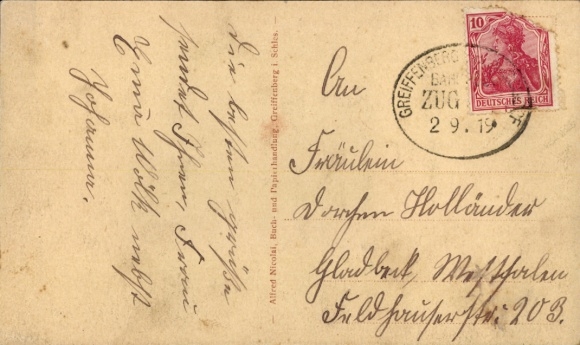 Die besten Grüße
sendet Ihnen, Frau
Erna Wölk nebst
Johanna.
Alfred Nicolai, Buch- und Papierhandlung, Greiffenberg i. Schles.
10
DEUTSCHES REICH
GREIFFENBERG
BAH
ZUG
2 9. 19
An
Fräulein
Dorchen Holländer
Gladbeck, Westfalen
Feldhauserstr. 203.